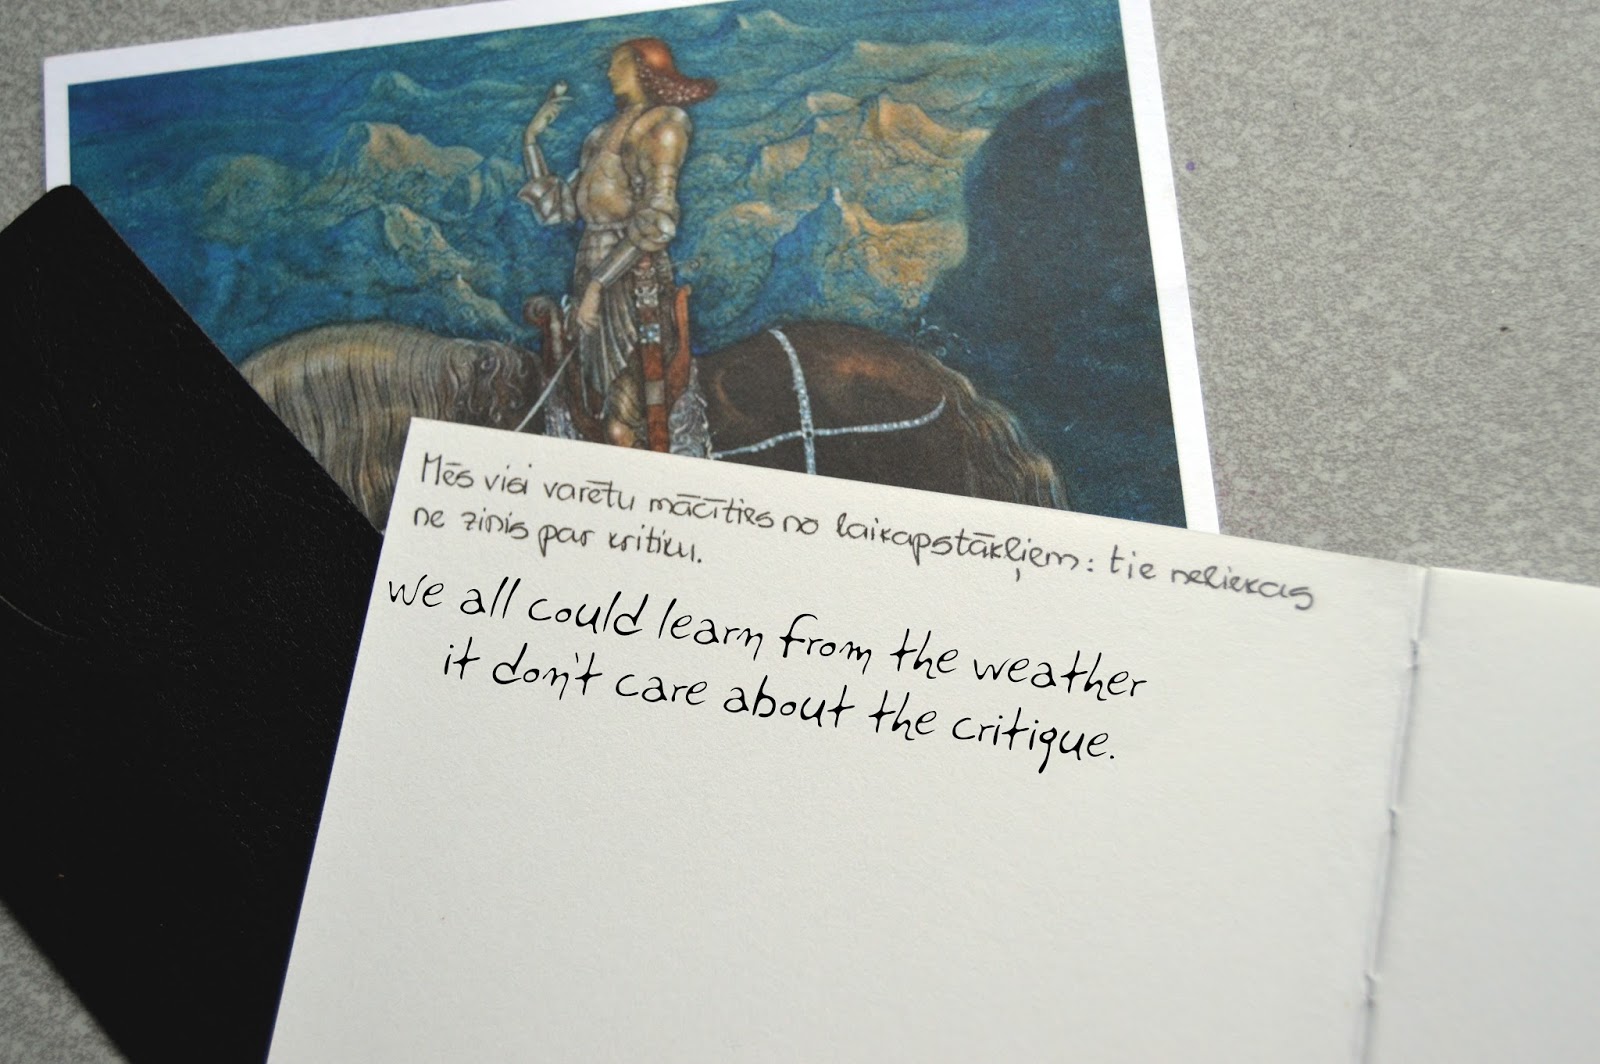 Mēs visi varētu mācīties no laikapstākļiem: tie neliekas
ne zinis par kritiku.
we all could learn from the weather
it don't care about the critique.